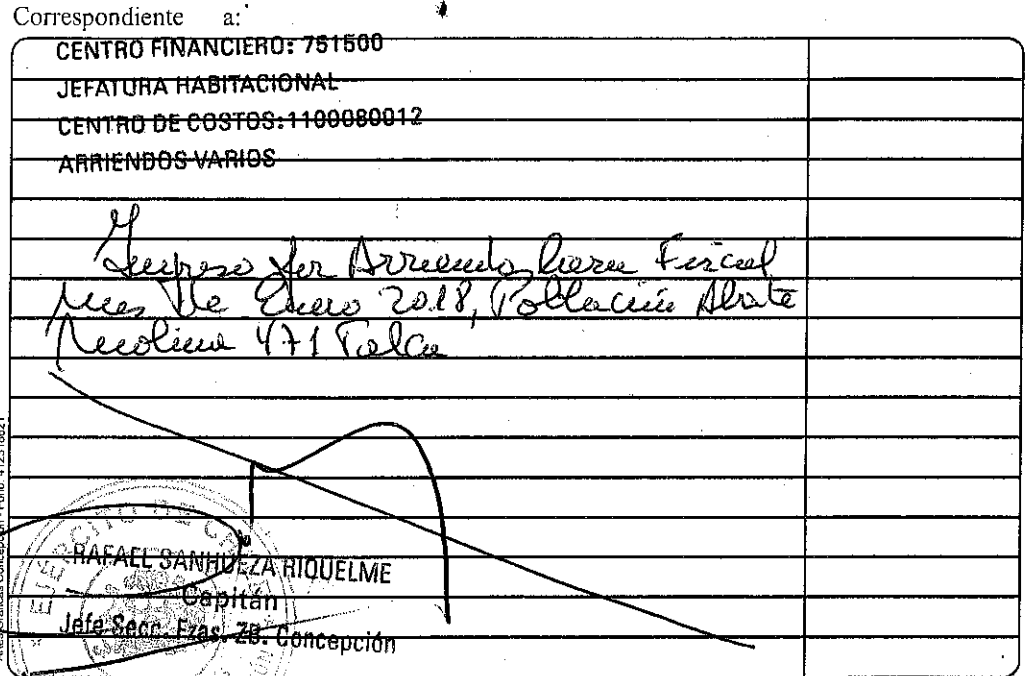 Correspondiente a:
CENTRO FINANCIERO: 751500
JEFATURA HABITACIONAL
CENTRO DE COSTOS: 1100080012
ARRIENDOS VARIOS
Ingreso por Arriendo Casa Fiscal
mes de Enero 2018, Población Abate
Molina 471 Talca
EJERCITO DE
RAFAEL SANHUEZA RIQUELME
Capitán
Jefe Secc. Fzas. ZB. Concepción